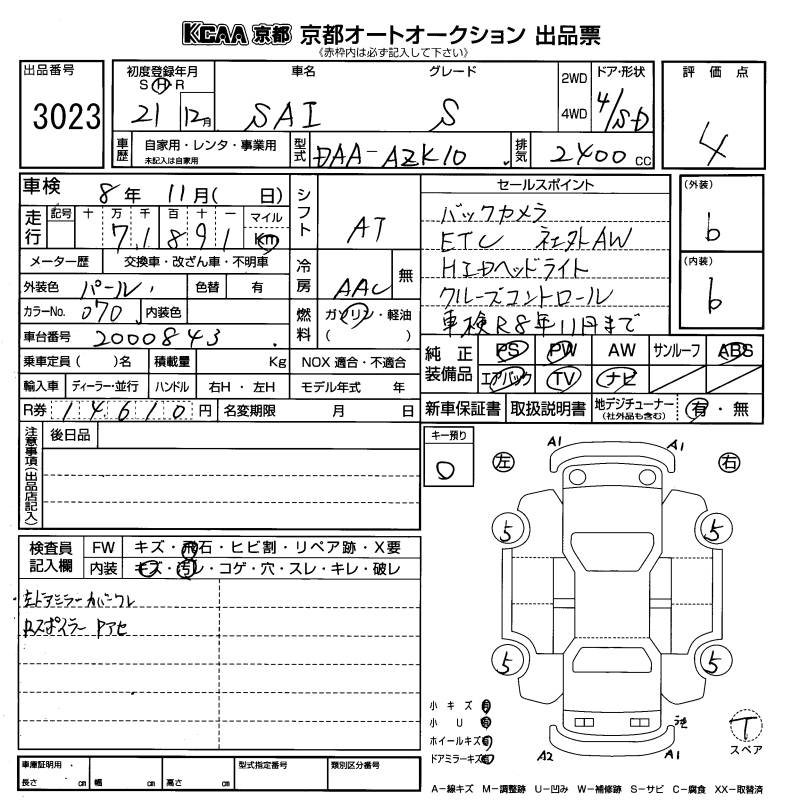 KCAA 京都 京都オートオークション 出品票
《赤枠内は必ず記入して下さい》
出品番号 3023
初度登録年月 S H R 21 12月
車名 SAI
グレード S
2WD 4WD
ドア・形状 4/SD
評価点 4
車歴 自家用・レンタ・事業用 未記入は自家用
型式 DAA-AZK10
排気 2400 CC
車検 8年 11月( 日)
走行 記号 十 万 千 百 十 一 マイル
7 1 8 9 1 Km
シフト AT
メーター歴 交換車・改ざん車・不明車
外装色 パール 色替 有
冷房 AAC 無
カラーNo. 070 内装色
燃料 ガソリン・軽油 ( )
車台番号 2000843
乗車定員 ( )名 積載量 Kg NOX 適合・不適合
輸入車 ディーラー・並行 ハンドル 右H・左H モデル年式 年
R券 14610 円 名変期限 月 日
セールスポイント
バックカメラ
ETC 社外AW
HIDヘッドライト
クルーズコントロール
車検R8年11月まで
(外装) b
(内装) b
純正装備品 PS PW AW サンルーフ ABS
エアバック TV ナビ
新車保証書 取扱説明書 地デジチューナー (社外品も含む) 有・無
注意事項(出品店記入) 後日品
キー預り 0
検査員記入欄 FW キズ・飛石・ヒビ割・リペア跡・X要
内装 キズ・汚レ・コゲ・穴・スレ・キレ・破レ
左ドアミラーカバーワレ
Rスポイラー Pアセ
A1 A1
左 右
5 5
5 5
小キズ 有
小U 有
ホイールキズ 有
ドアミラーキズ 有
A2 A1
T
スペア
車庫証明用・ 長さ cm 幅 cm 高さ cm 型式指定番号 類別区分番号
A−線キズ M−調整跡 U−凹み W−補修跡 S−サビ C−腐食 XX−取替済